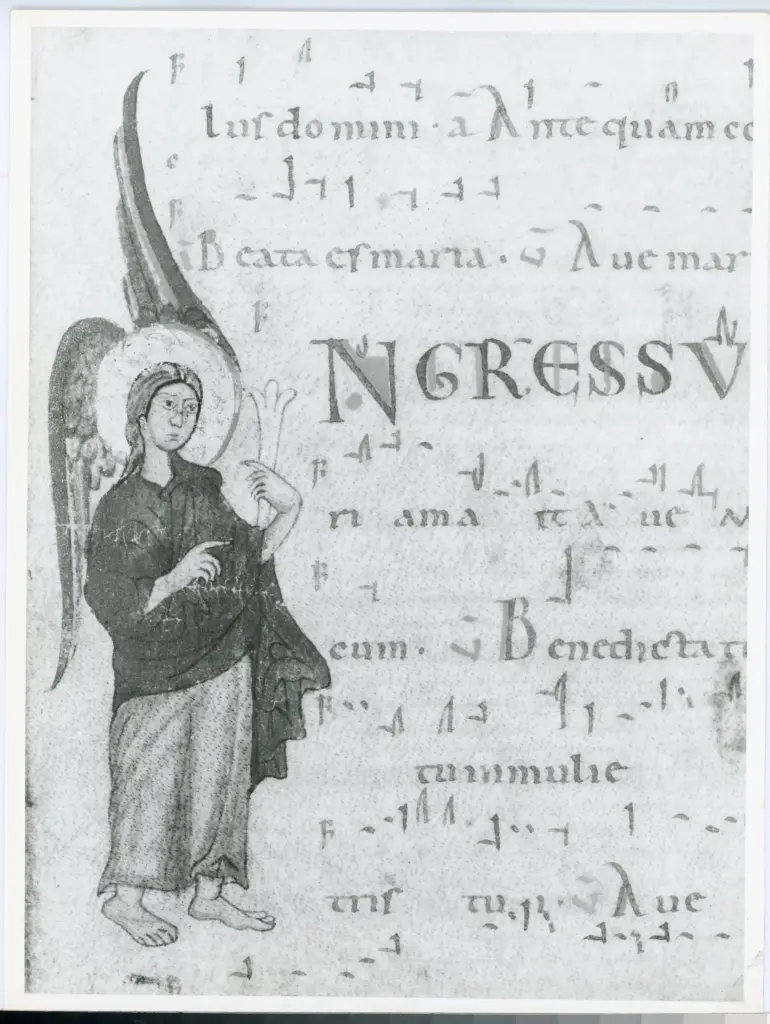 lusdomini · a Antequam co
Beata esmaria · v Aue mar
NGRESSV
ri ama tt A ue M
eum · v Benedictatu
tuinmulie
tris tuṇ · v Aue